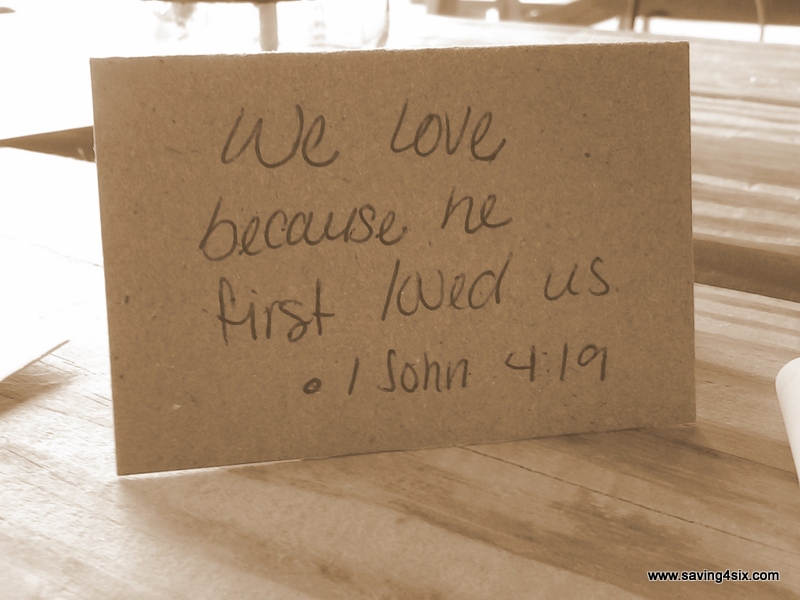 We love
because he
first loved us
• 1 John 4:19
www.saving4six.com